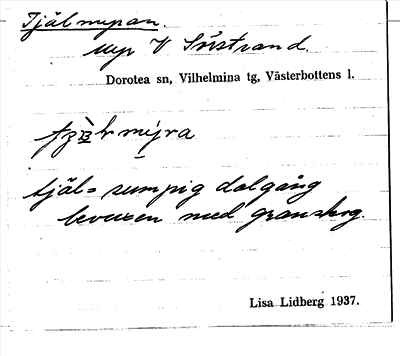 Tjälmyran.
Myr V Sörstrand.
Dorotea sn, Vilhelmina tg, Västerbottens l.
tjäl = sumpig dalgång
bevuxen med granskog.
Lisa Lidberg 1937.